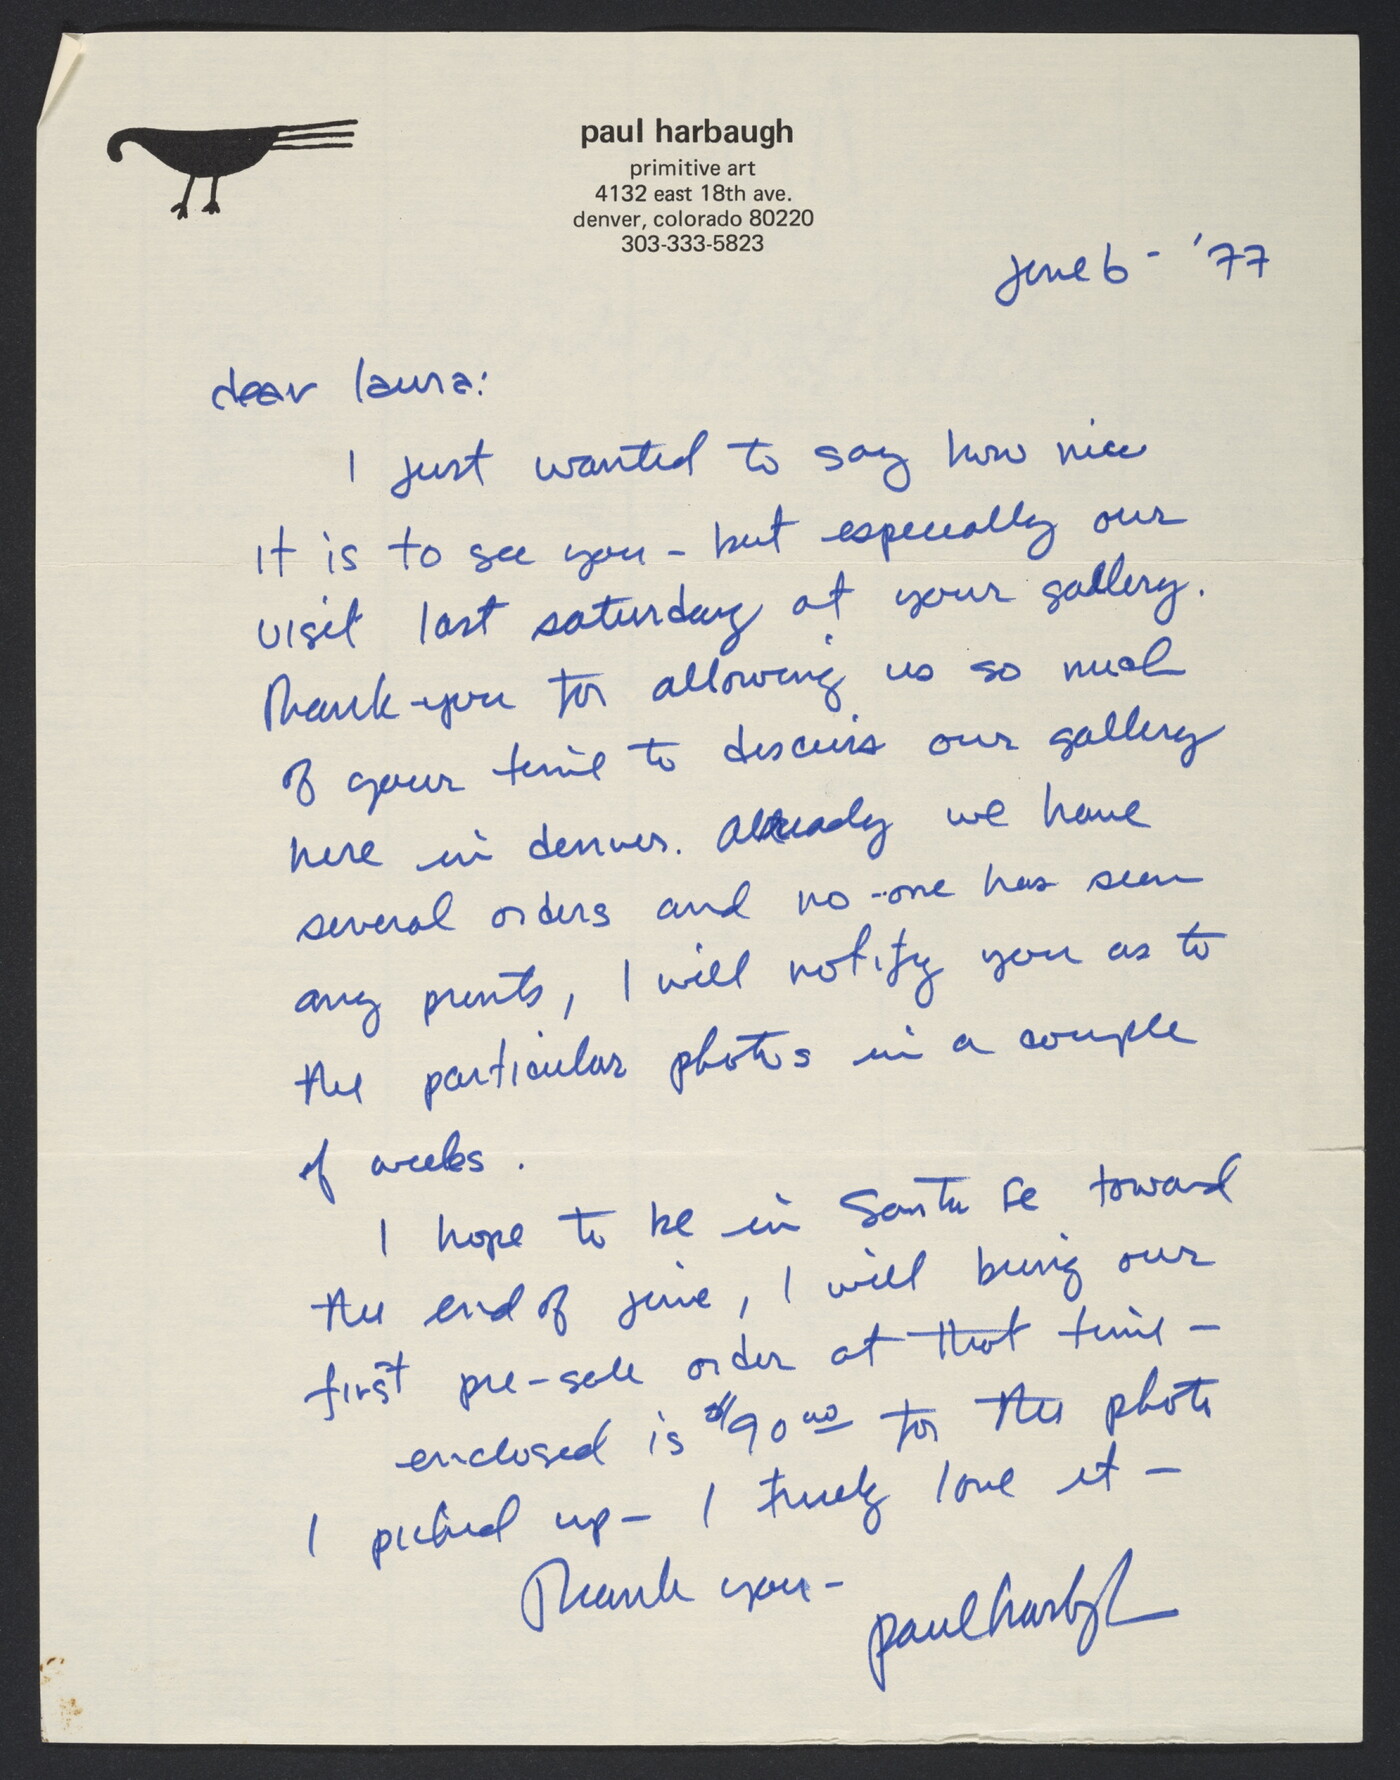 paul harbaugh
primitive art
4132 east 18th ave.
denver, colorado 80220
303-333-5823
june 6 - '77
dear laura:
I just wanted to say how nice
it is to see you - but especially our
visit last saturday at your gallery.
Thank-you for allowing us so much
of your time to discuss our gallery
here in denver. Already we have
several orders and no-one has seen
any prints, I will notify you as to
the particular photos in a couple
of weeks.
I hope to be in Santa Fe toward
the end of june, I will bring our
first pre-sale order at that time -
enclosed is $90.00 for the photo
I picked up - I truely love it -
Thank you -
paul harbaugh